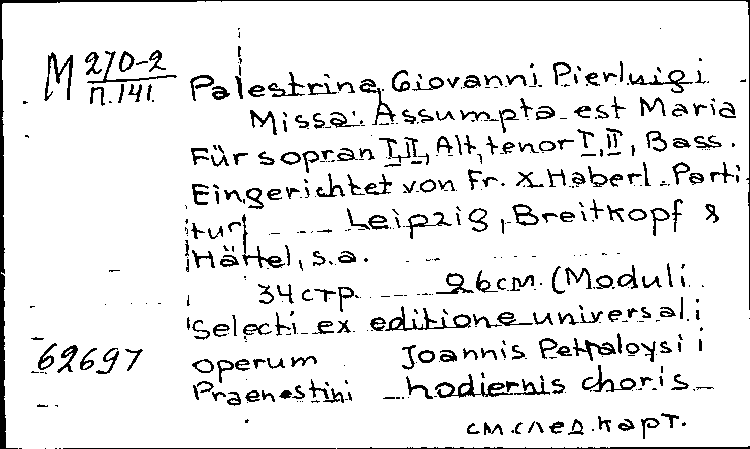 M 270-2
П.141.
Palestrina, Giovanni Pierluigi
Missa: Assumpta est Maria
Für sopran I,II, Alt, tenor I,II, Bass.
Eingerichtet von Fr. X. Haberl. Parti
tur Leipzig, Breitkopf &
Härtel, s.a.
34 стр. 26см. (Moduli
Selecti ex editione universali
62697 operum Joannis Petraloysii
Praenestini hodiernis choris
см.след.карт.